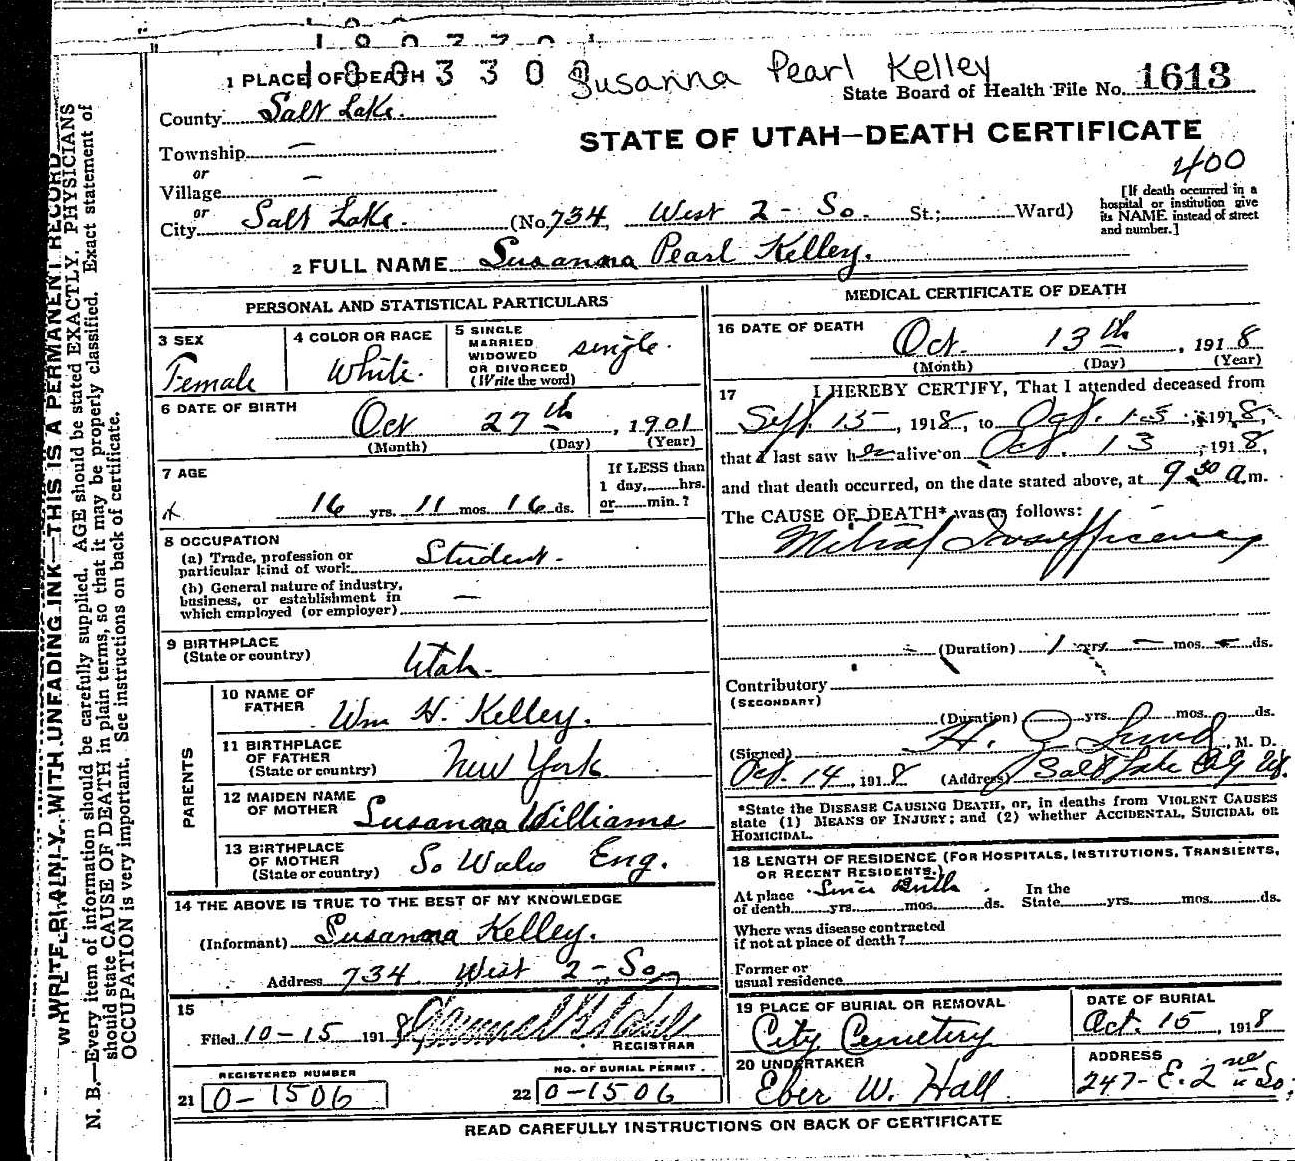 1003300
Susanna Pearl Kelley
1 PLACE OF DEATH
State Board of Health File No. 1613
County Salt Lake.
STATE OF UTAH—DEATH CERTIFICATE
Township —
400
or
Village —
or
City Salt Lake. (No. 734, West 2 - So. St.; Ward)
[If death occurred in a
hospital or institution give
its NAME instead of street
and number.]
2 FULL NAME Susanna Pearl Kelley.
PERSONAL AND STATISTICAL PARTICULARS
3 SEX
Female
4 COLOR OR RACE
White.
5 SINGLE
MARRIED
WIDOWED
OR DIVORCED
(Write the word)
single.
6 DATE OF BIRTH
Oct 27th, 1901
(Month) (Day) (Year)
7 AGE
16 yrs. 11 mos. 16 ds.
If LESS than
1 day, hrs.
or min.?
8 OCCUPATION
(a) Trade, profession or
particular kind of work Student.
(b) General nature of industry,
business, or establishment in
which employed (or employer) —
9 BIRTHPLACE
(State or country)
Utah.
PARENTS
10 NAME OF
FATHER
Wm H. Kelley.
11 BIRTHPLACE
OF FATHER
(State or country)
New York
12 MAIDEN NAME
OF MOTHER
Susanna Williams
13 BIRTHPLACE
OF MOTHER
(State or country)
So Wales Eng.
14 THE ABOVE IS TRUE TO THE BEST OF MY KNOWLEDGE
(Informant) Susanna Kelley.
Address 734 West 2 - So,
15
Filed 10-15 1918
REGISTRAR
REGISTERED NUMBER
21 0-1506
NO. OF BURIAL PERMIT.
22 0-1506
MEDICAL CERTIFICATE OF DEATH
16 DATE OF DEATH
Oct. 13th, 1918
(Month) (Day) (Year)
17 I HEREBY CERTIFY, That I attended deceased from
Sept. 15, 1918, to Oct. 13, 1918,
that I last saw her alive on Oct. 13, 1918,
and that death occurred, on the date stated above, at 9 30 a.m.
The CAUSE OF DEATH* was as follows:
Mitral Insufficiency
(Duration) 1 yrs. — mos. — ds.
Contributory
(SECONDARY)
(Duration) yrs. mos. ds.
(Signed) H. Lund, M. D.
Oct. 14, 1918 (Address) Salt Lake City Ut.
*State the DISEASE CAUSING DEATH, or, in deaths from VIOLENT CAUSES
state (1) MEANS OF INJURY; and (2) whether ACCIDENTAL, SUICIDAL OR
HOMICIDAL.
18 LENGTH OF RESIDENCE (FOR HOSPITALS, INSTITUTIONS, TRANSIENTS,
OR RECENT RESIDENTS.)
At place Since Birth. In the
of death yrs. mos. ds. State yrs. mos. ds.
Where was disease contracted
if not at place of death?
Former or
usual residence
19 PLACE OF BURIAL OR REMOVAL
City Cemetery
DATE OF BURIAL
Oct. 15, 1918
20 UNDERTAKER
Eber W. Hall
ADDRESS
247- E. 2nd So.
READ CAREFULLY INSTRUCTIONS ON BACK OF CERTIFICATE
WRITE PLAINLY, WITH UNFADING INK—THIS IS A PERMANENT RECORD
N. B.—Every item of information should be carefully supplied. AGE should be stated EXACTLY. PHYSICIANS
should state CAUSE OF DEATH in plain terms, so that it may be properly classified. Exact statement of
OCCUPATION is very important. See instructions on back of certificate.